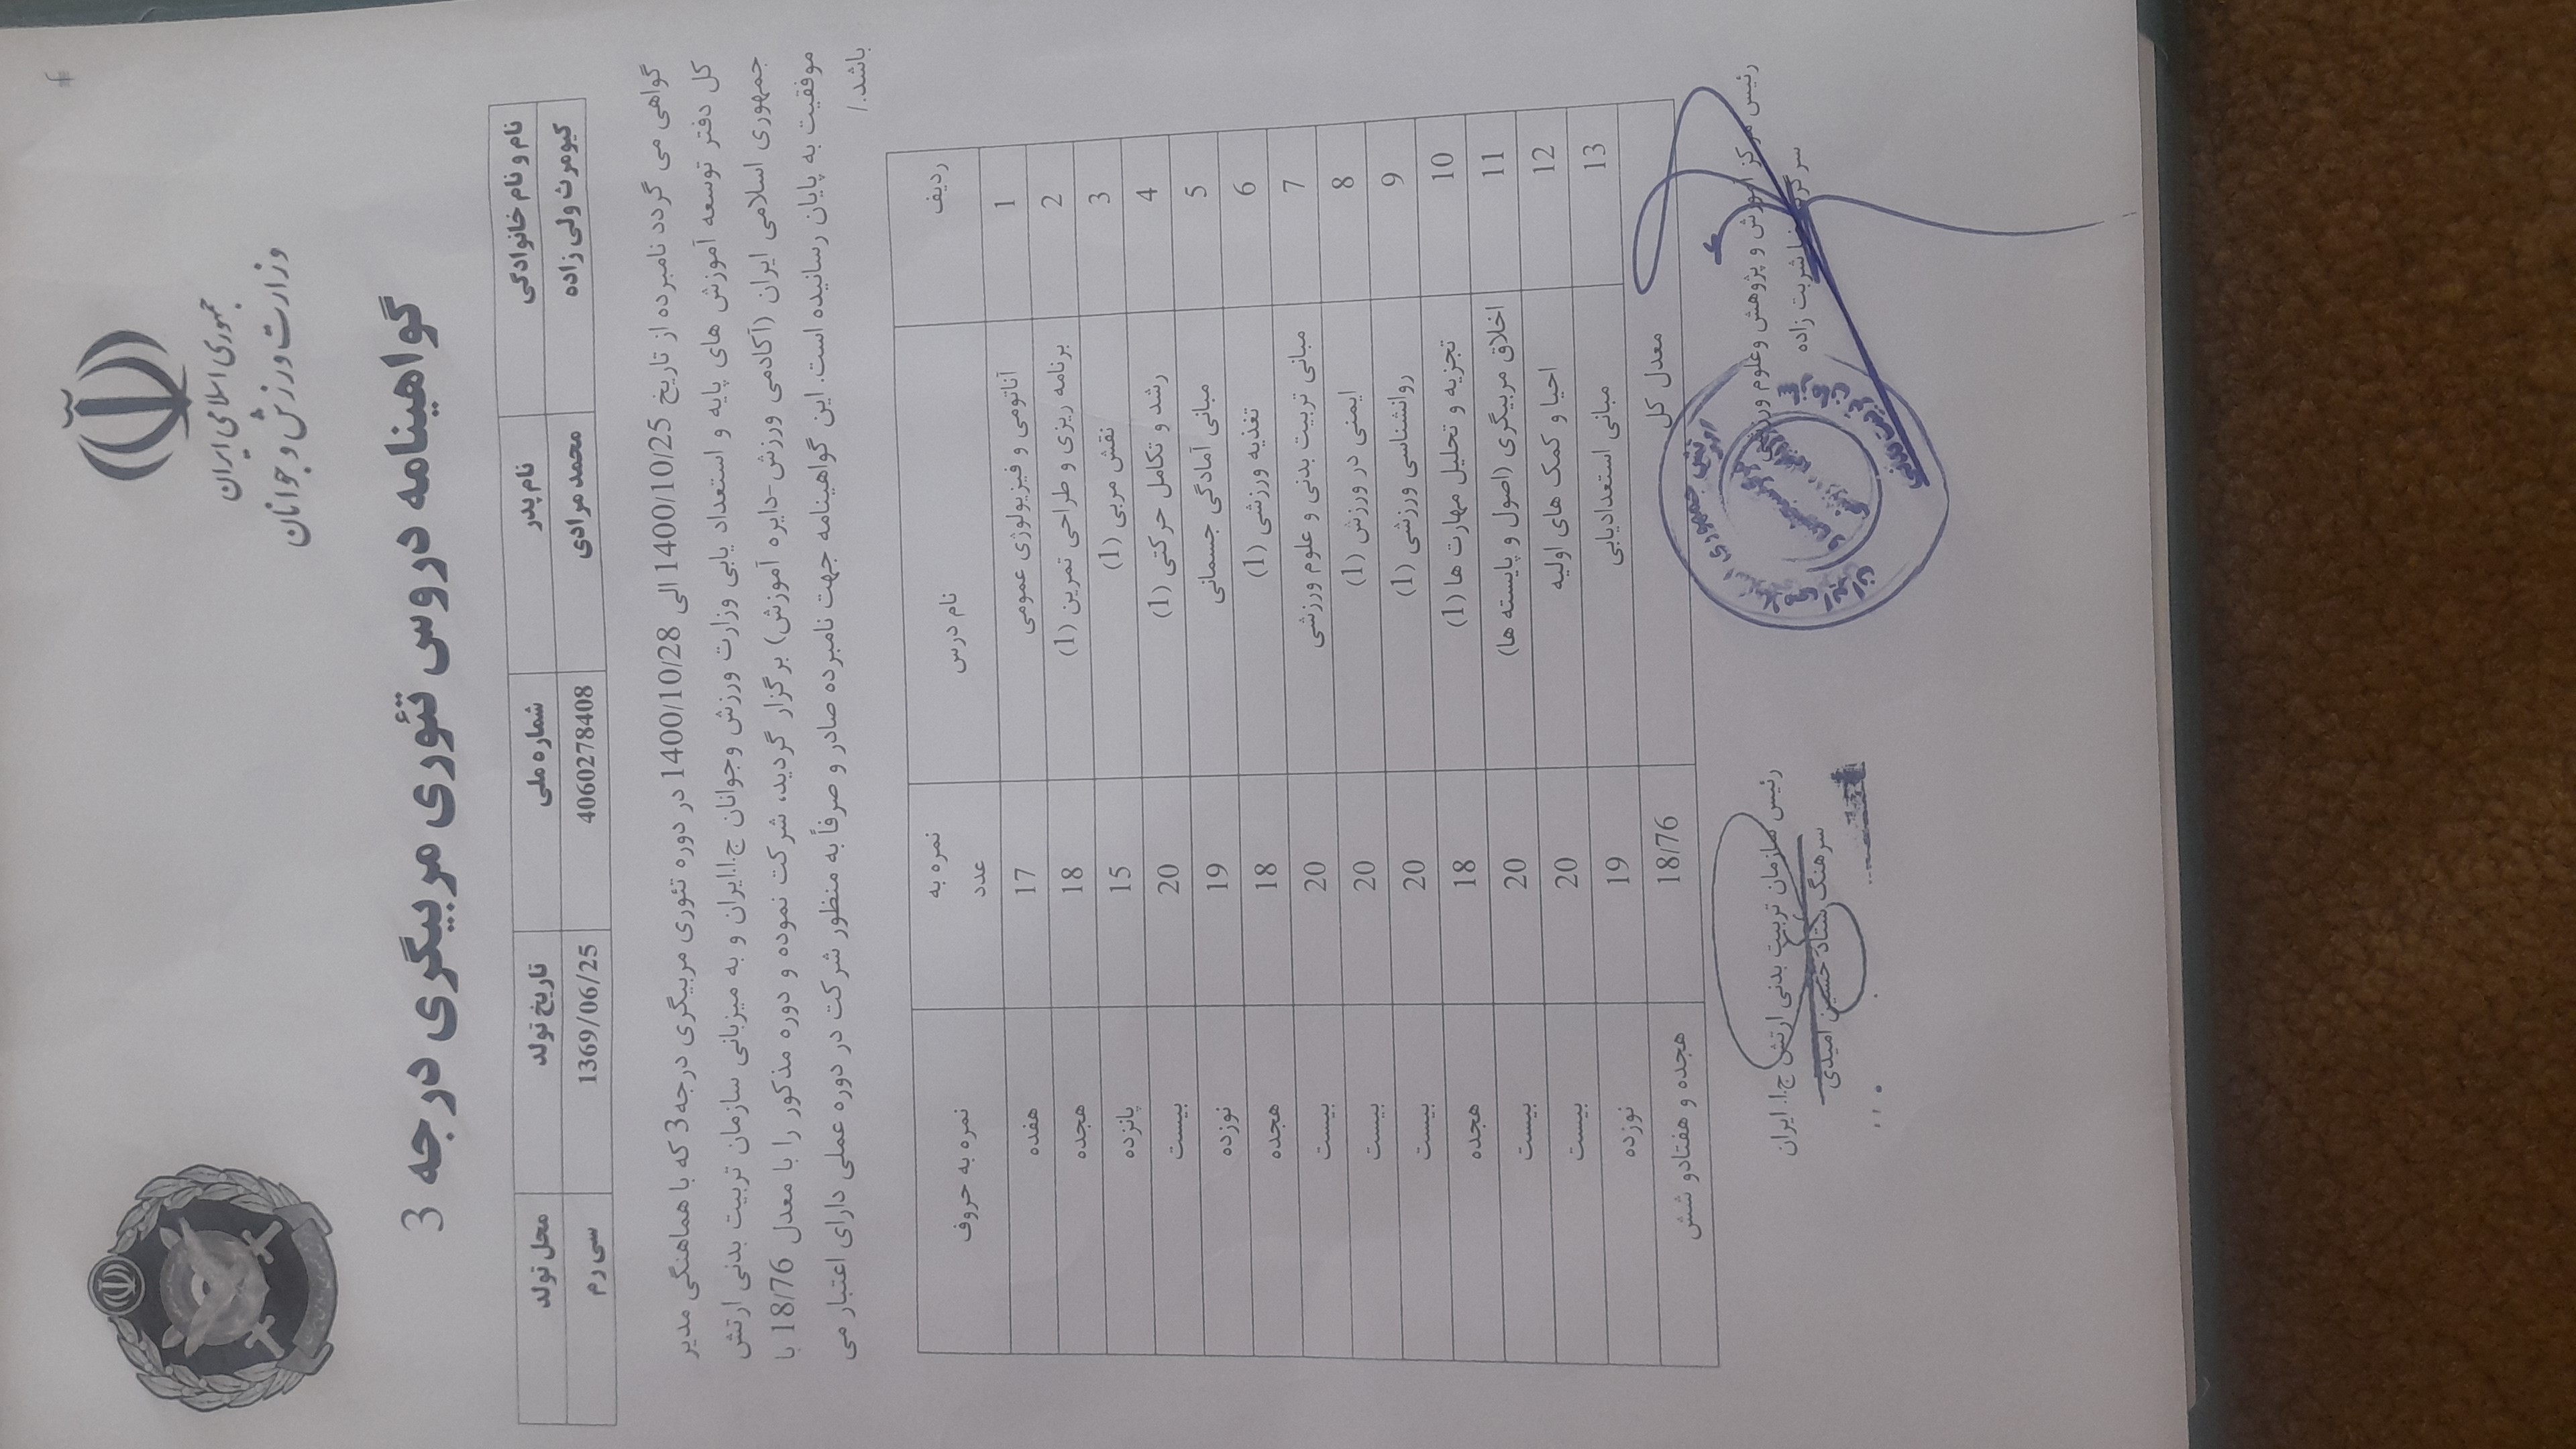 جمهوری اسلامی ایران
وزارت ورزش و جوانان
گواهینامه دروس تئوری مربیگری درجه 3
نام و نام خانوادگی نام پدر شماره ملی تاریخ تولد محل تولد
کیومرث ولی زاده محمد مرادی 4060278408 1369/06/25 سی رم
گواهی می گردد نامبرده از تاریخ 1400/10/25 الی 1400/10/28 در دوره تئوری مربیگری درجه 3 که با هماهنگی مدیر
کل دفتر توسعه آموزش های پایه و استعداد یابی وزارت ورزش وجوانان ج.ا.ایران و به میزبانی سازمان تربیت بدنی ارتش
جمهوری اسلامی ایران (آکادمی ورزش-دایره آموزش) برگزار گردید، شرکت نموده و دوره مذکور را با معدل 18/76 با
موفقیت به پایان رسانیده است. این گواهینامه جهت نامبرده صادر و صرفاً به منظور شرکت در دوره عملی دارای اعتبار می
باشد./
ردیف نام درس نمره به عدد نمره به حروف
1 آناتومی و فیزیولوژی عمومی 17 هفده
2 برنامه ریزی و طراحی تمرین (1) 18 هجده
3 نقش مربی (1) 15 پانزده
4 رشد و تکامل حرکتی (1) 20 بیست
5 مبانی آمادگی جسمانی 19 نوزده
6 تغذیه ورزشی (1) 18 هجده
7 مبانی تربیت بدنی و علوم ورزشی 20 بیست
8 ایمنی در ورزش (1) 20 بیست
9 روانشناسی ورزشی (1) 20 بیست
10 تجزیه و تحلیل مهارت ها (1) 18 هجده
11 اخلاق مربیگری (اصول و بایسته ها) 20 بیست
12 احیا و کمک های اولیه 20 بیست
13 مبانی استعدادیابی 19 نوزده
معدل کل 18/76 هجده و هفتادو شش
رئیس مرکز آموزش و پژوهش وعلوم ورزشی
شربت زاده
رئیس سازمان تربیت بدنی ارتش ج.ا. ایران
سرهنگ ستاد حسین امیدی